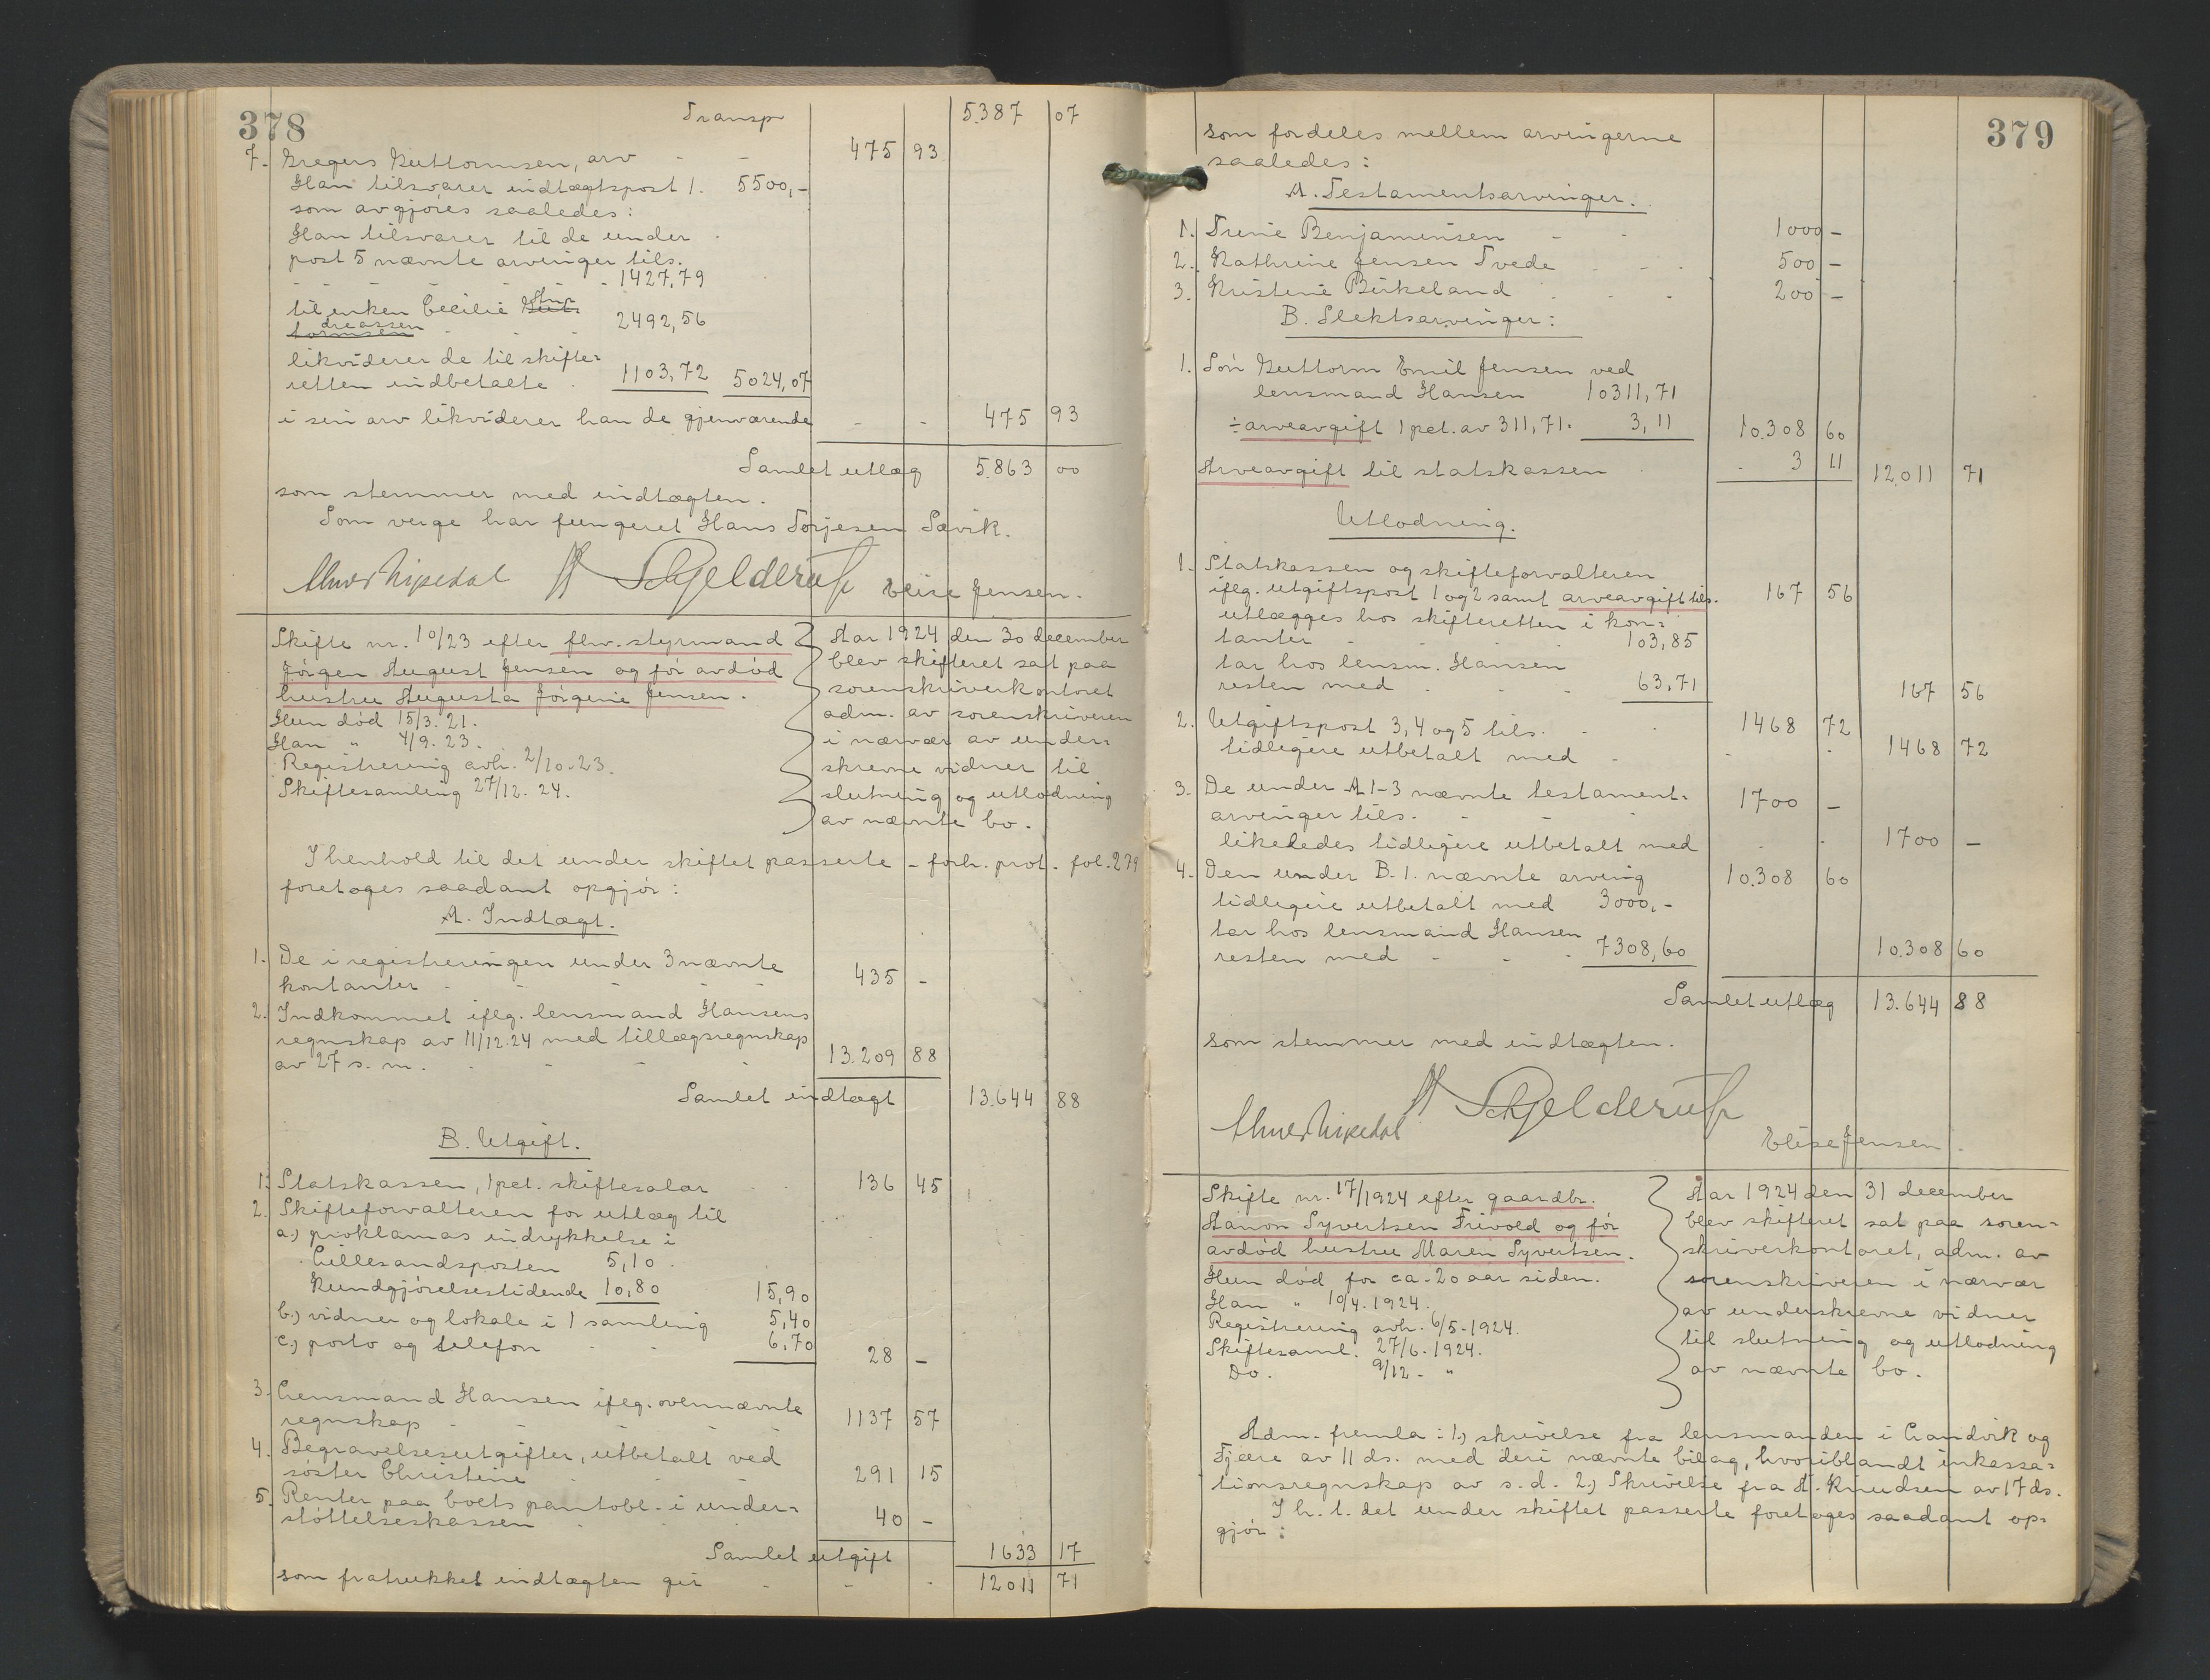 378
Transp 5.387 07
7. Gregers Guttormsen, arv - - 475 93
Han tilsvarer indtægtspost 1. 5500,-
som avgjøres saaledes:
Han tilsvarer til de under
post 5 nævnte arvinger tils.
- - - - - 1427,79
til enken Cecilie Gut- An-
tormsen dreassen - - 2492,56
likviderer de til skifte-
retten indbetalte . 1103,72 5024,07
i sin arv likviderer han de gjenværende - - 475 93
Samlet utlæg 5.863 00
som stemmer med indtægten.
Som verge har fungeret Hans Torjesen Sævik.
Schjelderup Elise Jensen.
Skifte nr. 10/23 efter flw. styrmand
Jörgen August Jensen og för avdöd
hustru Augusta Jörgine Jensen.
Hun död 15/3. 21.
Han " 4/9. 23.
Registrering avh. 2/10-23.
Skiftesamling 27/12. 24.
Aar 1924 den 30 december
blev skifteret sat paa
sorenskriverkontoret
adm. av sorenskriveren
i nærvær av under-
skrevne vidner til
slutning og utlodning
av nævnte bo.
I henhold til det under skiftet passerte - forh. prot. fol. 279
foretages saadant opgjör:
A. Indtægt.
1. De i registreringen under 3 nævnte
kontanter - - - - - 435 -
2. Indkommet iflg. lensmand Hansens
regnskap av 11/12.24 med tillægsregnskap
av 27 s. m. . - - . 13.209 88
Samlet indtægt 13.644 88
B. Utgift.
1. Statskassen, 1 pct. skiftesalær 136 45
2. Skifteforvalteren for utlæg til
a.) proklamas indrykkelse i
Lillesandsposten 5,10
Kundgjörelsestidende 10,80 15,90
b.) vidner og lokale i 1 samling 5,40
c.) porto og telefon . . 6,70 28 -
3. Lensmand Hansen iflg. ovennævnte
regnskap - - - - - 1137 57
4. Begravelsesutgifter, utbetalt ved
söster Christine . . . 291 15
5. Renter paa boets pantobl. i under-
stöttelseskassen . . . 40 -
Samlet utgift 1633 17
som fratrukket indtægten gir - - . 12011 71
379
som fordeles mellem arvingerne
saaledes:
A. Testamentsarvinger.
1. Trine Benjaminsen - - 1000 -
2. Kathrine Jensen Tvede - - . 500 -
3. Kristine Birkeland . . 200 -
B. Slektsarvinger:
1. Sön Guttorm Emil Jensen ved
lensmand Hansen 10311,71
÷ arveavgift 1 pct. av 311,71. 3,11 10.308 60
Arveavgift til statskassen . . 3 11 12.011 71
Utlodning.
1. Statskassen og skifteforvalteren
iflg. utgiftspost 1 og 2 samt arveavgift tils. 167 56
utlægges hos skifteretten i kon-
tanter - - - 103,85
tar hos lensm. Hansen
resten med . . - 63,71 167 56
2. Utgiftspost 3, 4 og 5 tils. . . 1468 72
tidligere utbetalt med - - . 1468 72
3. De under A 1-3 nævnte testament-
arvinger tils. - - . 1700 -
likeledes tidligere utbetalt med . . 1700 -
4. Den under B. 1. nævnte arving 10.308 60
tidligere utbetalt med 3000,-
tar hos lensmand Hansen
resten med - - - 7308,60 10.308 60
Samlet utlæg 13.644 88
som stemmer med indtægten.
Schjelderup
Elise Jensen.
Skifte nr. 17/1924 efter gaardbr.
Aanon Syvertsen Frivold og för
avdöd hustru Maren Syvertsen.
Hun död for ca. 20 aar siden.
Han " 10/4. 1924.
Registrering avh. 6/5-1924.
Skiftesaml. 27/6-1924.
Do. 9/12- "
Aar 1924 den 31 december
blev skifteret sat paa soren-
skriverkontoret, adm. av
sorenskriveren i nærvær
av underskrevne vidner
til slutning og utlodning
av nævnte bo.
Adm. fremla: 1.) skrivelse fra lensmanden i Landvik og
Fjære av 11 ds. med deri nævnte bilag, hvoriblandt inkassa-
tionsregnskap av s. d. 2.) Skrivelse fra A. Knudsen av 17 ds.
I h. t. det under skiftet passerte foretages saadant op-
gjör: